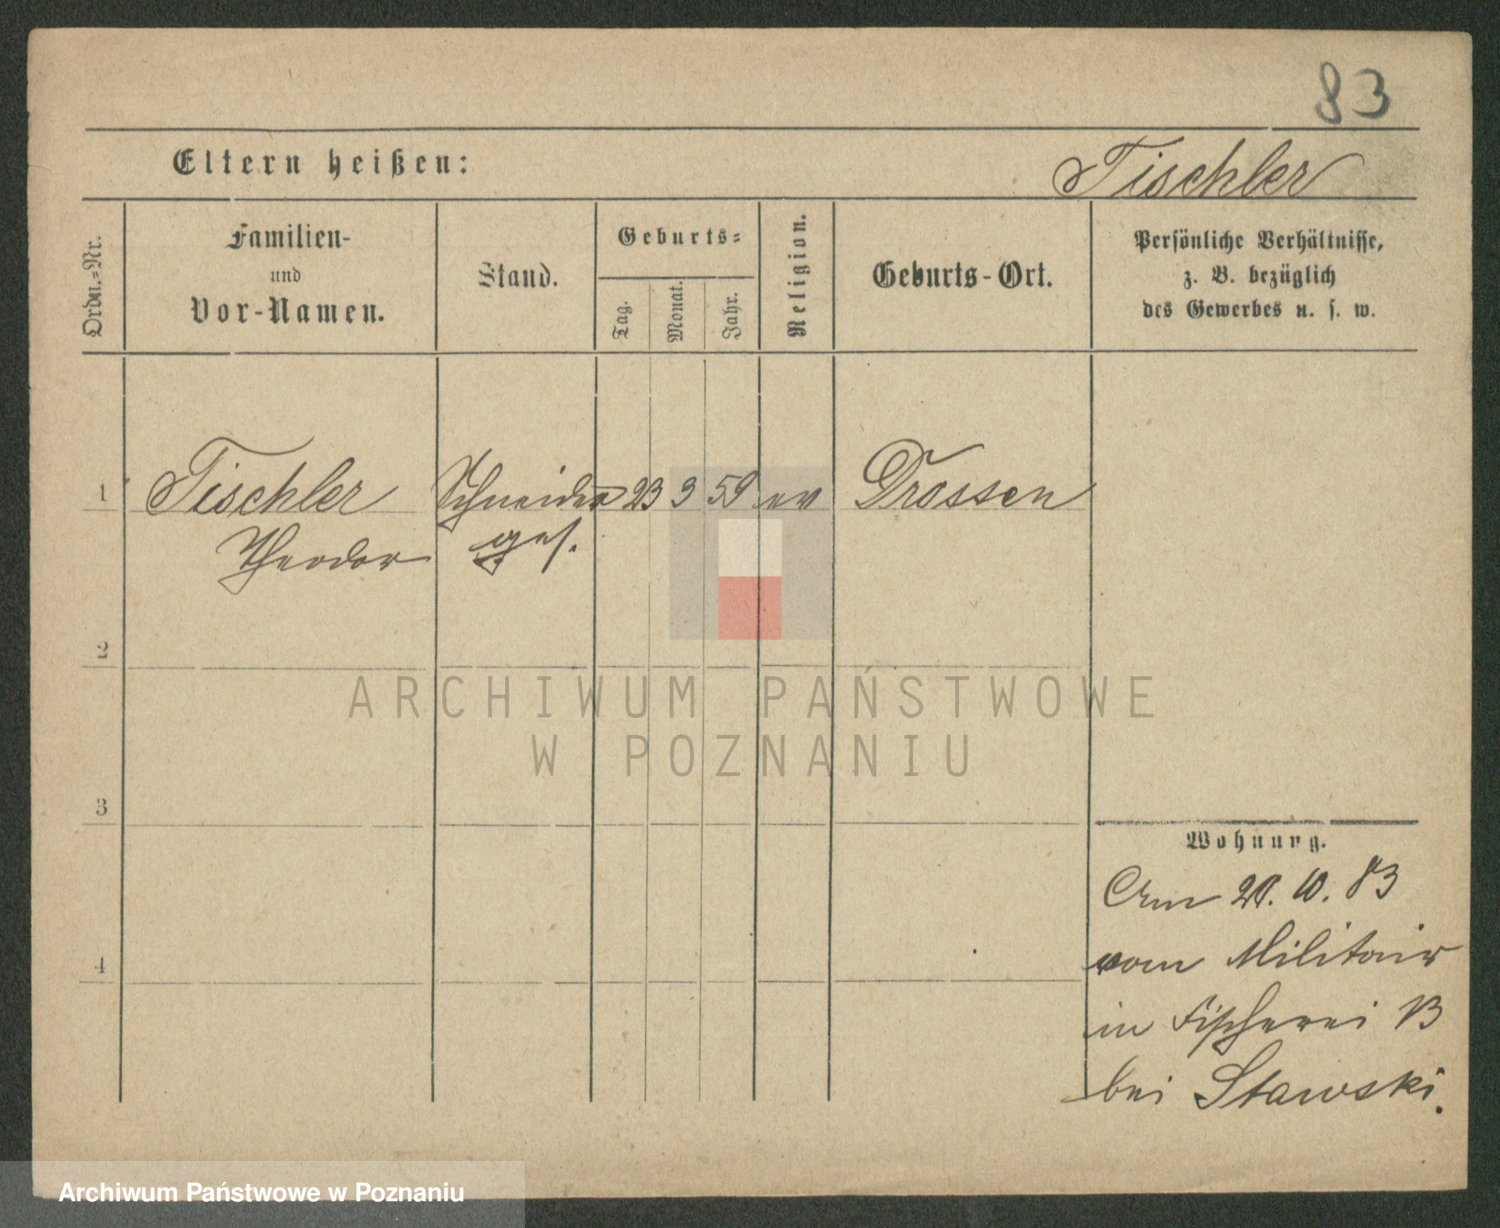 83
Eltern heißen:
Tischler
Ordn.=Nr.
Familien-
und
Vor-Namen.
Stand.
Geburts=
Tag.
Monat.
Jahr.
Religion.
Geburts-Ort.
Persönliche Verhältnisse,
z. B. bezüglich
des Gewerbes u. s. w.
1 Tischler Schneider 23 3 59 ev Drossen
Theodor ges.
2
3
4
Wohnung.
Am 10. 83
vom Militair
in Fischerei 13
bei Stawski.
ARCHIWUM PAŃSTWOWE
W POZNANIU
Archiwum Państwowe w Poznaniu